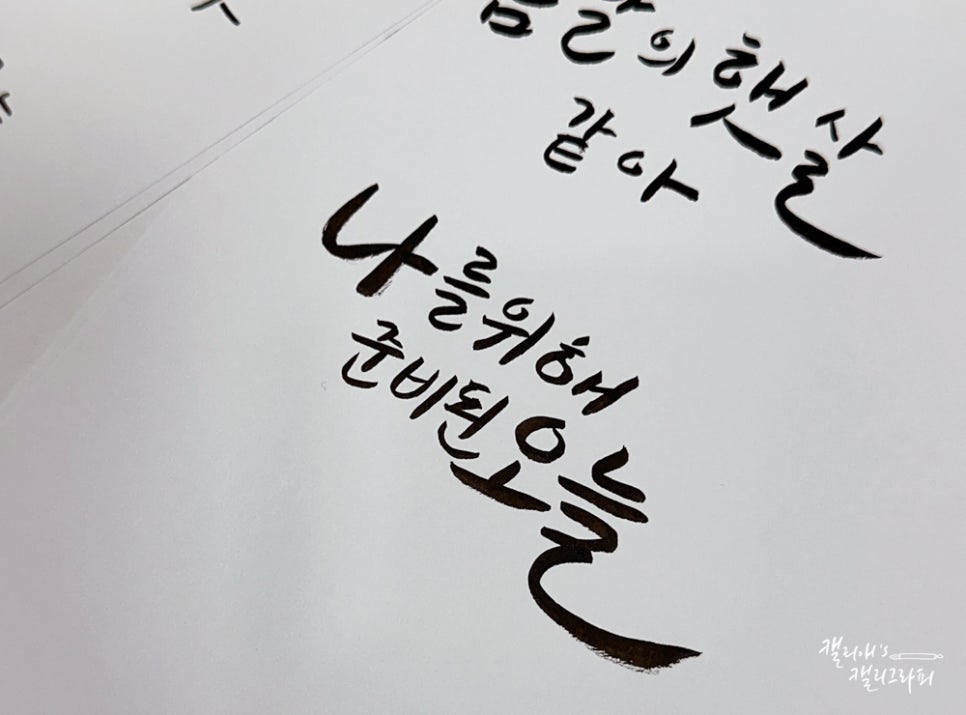 햇살
같아
나를위해
준비된오늘
캘리애's
캘리그라피